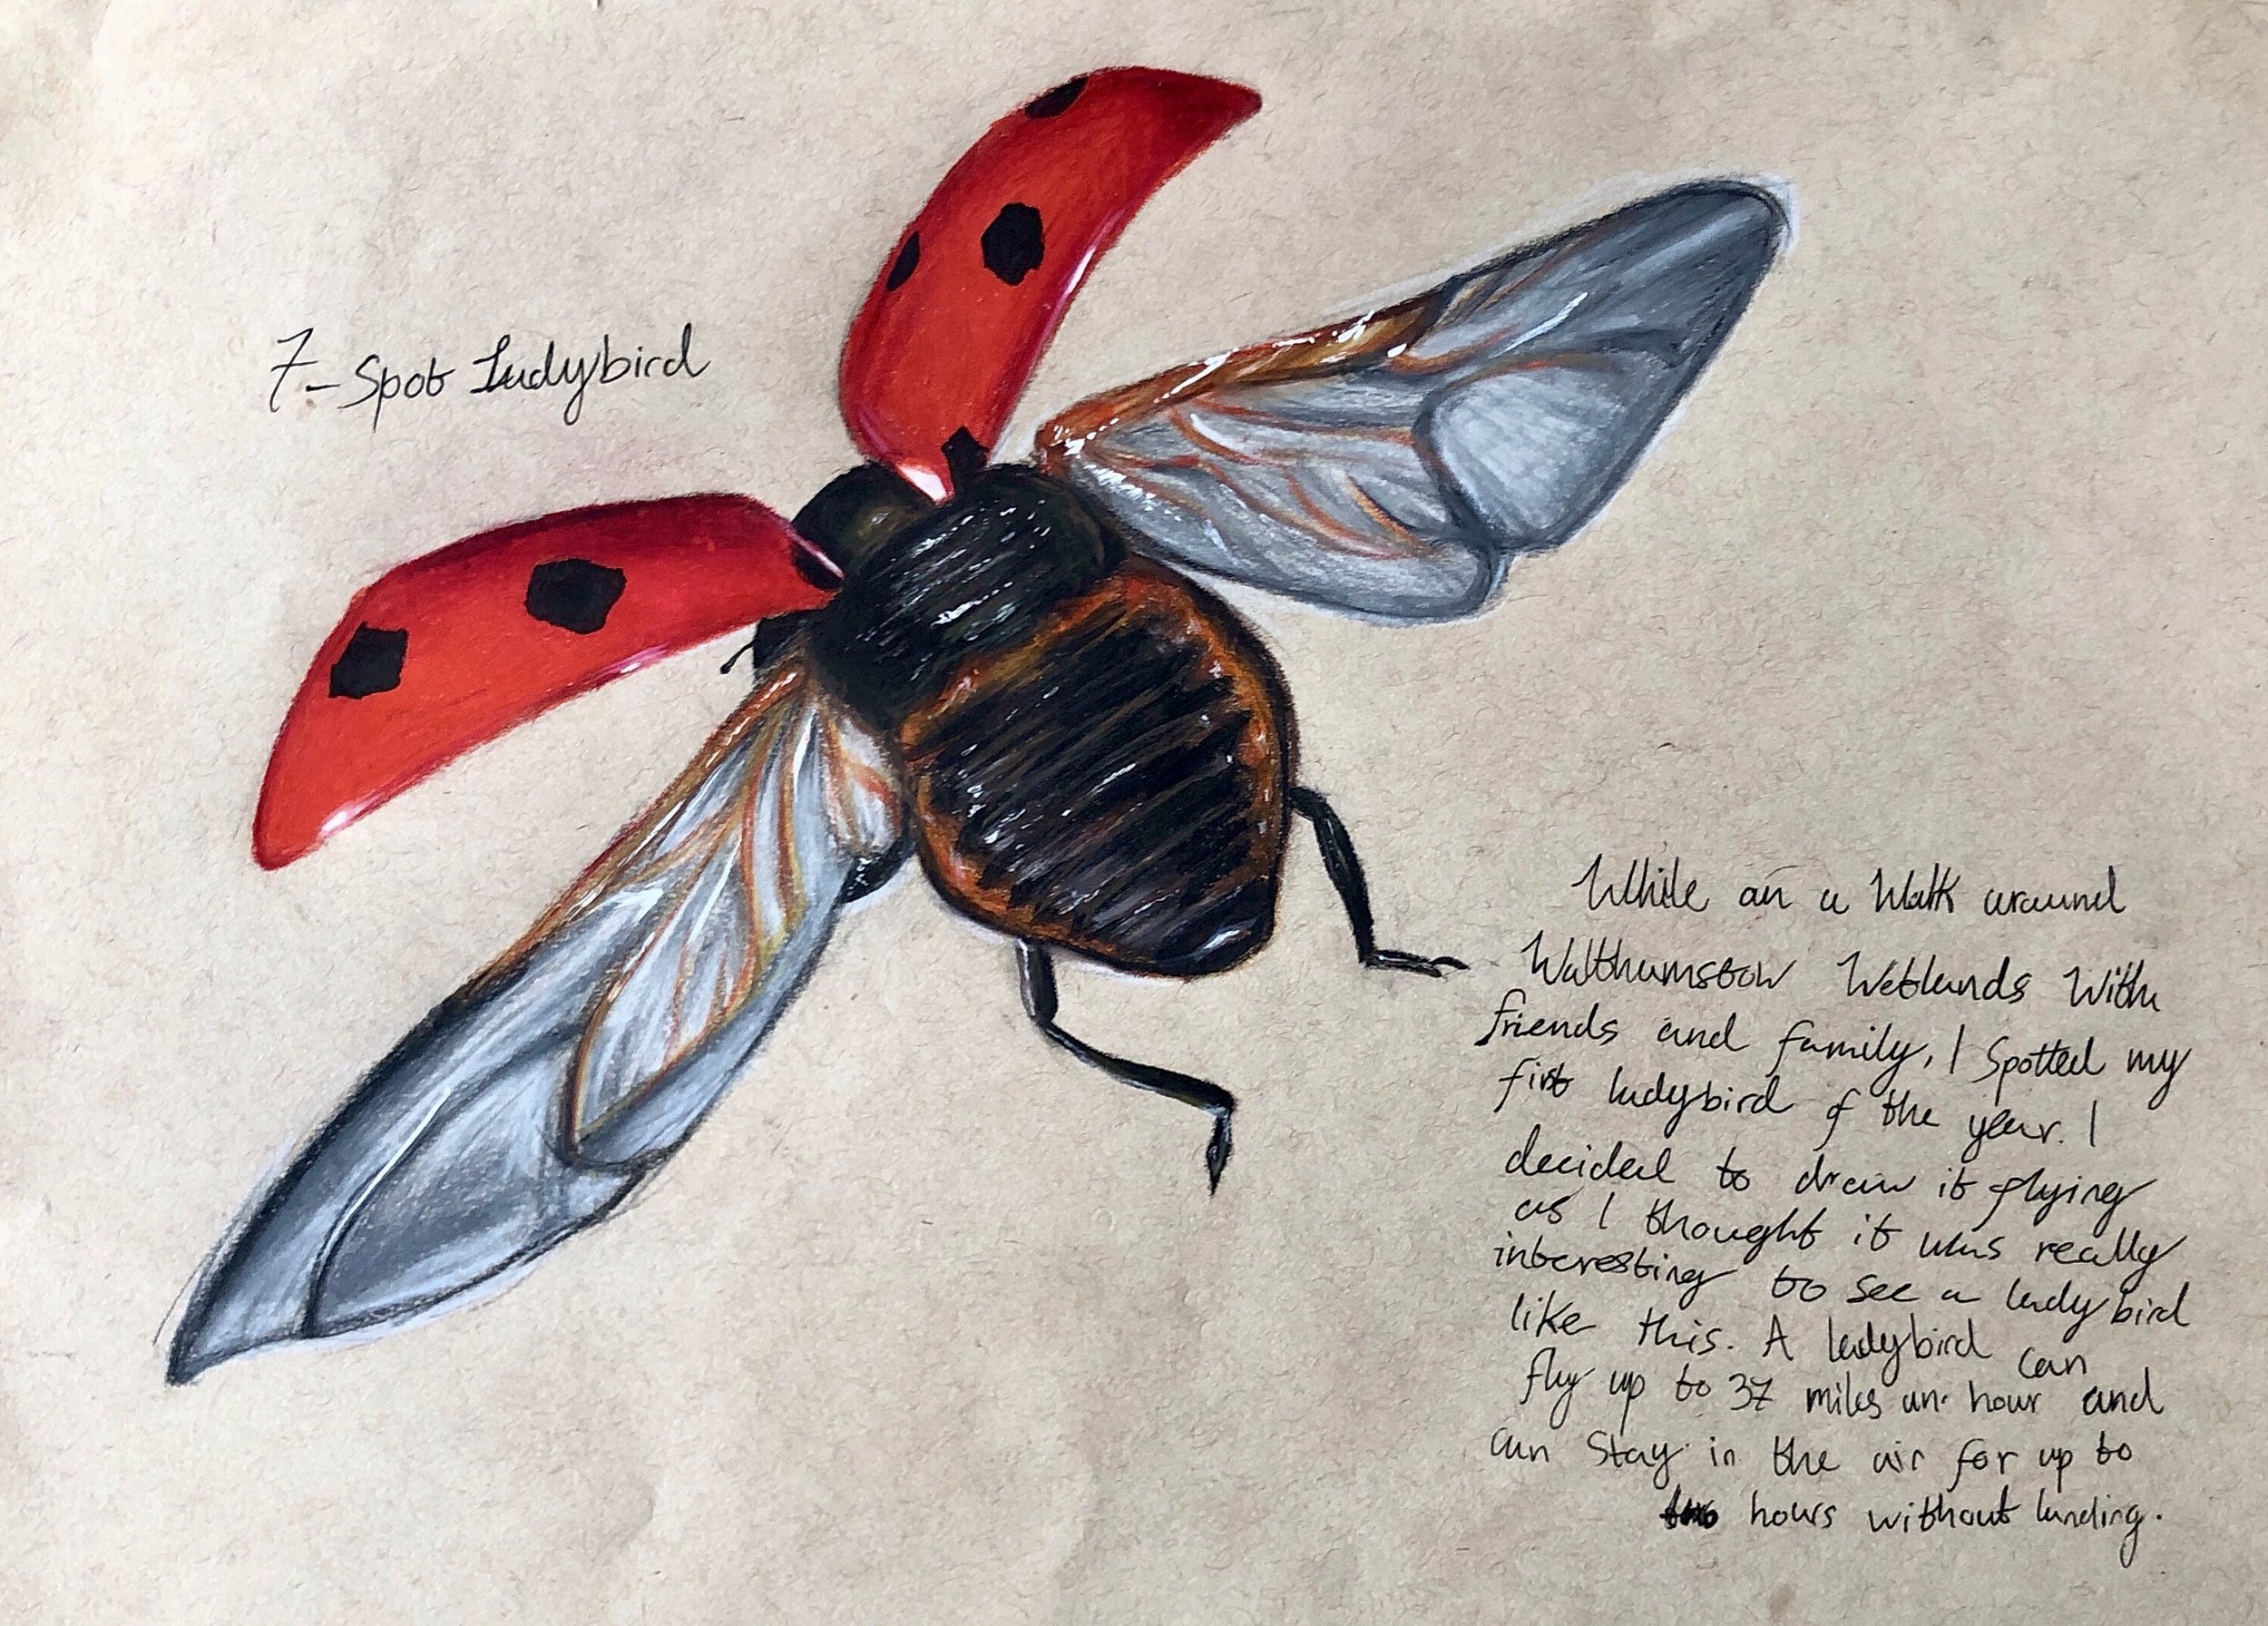 7-Spot Ladybird
While on a Walk around
Walthamstow Wetlands With
friends and family, I Spotted my
first ladybird of the year. I
decided to draw it flying
as I thought it was really
interesting to see a ladybird
like this. A ladybird can
fly up to 37 miles an hour and
can Stay in the air for up to
two hours without landing.